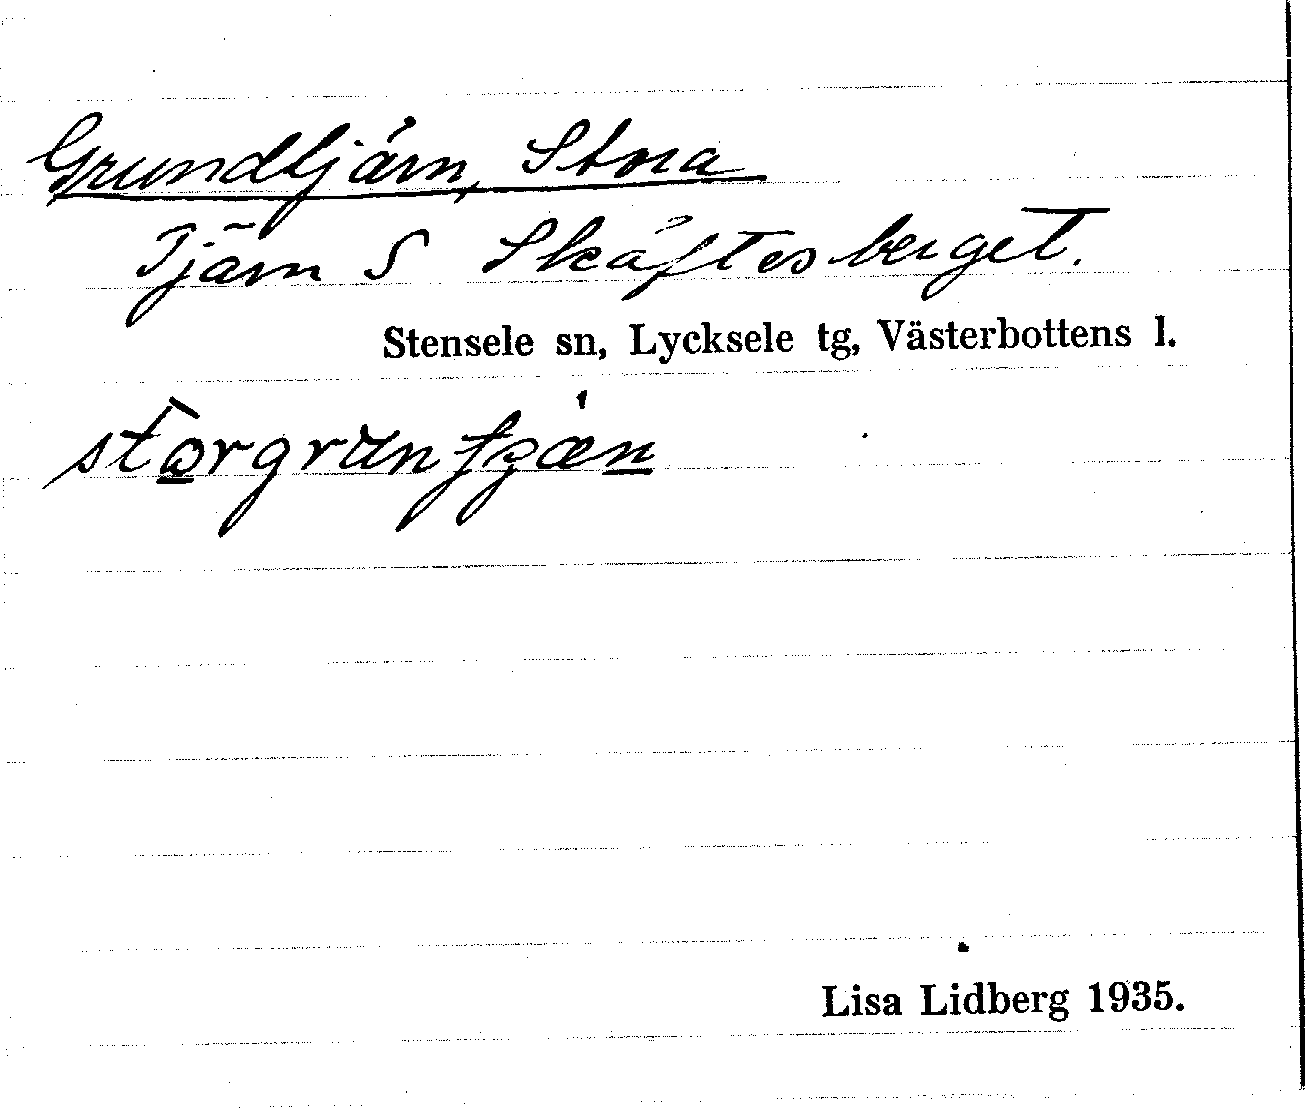 Grundtjärn, Stora
Tjärn S Skäftesberget.
Stensele sn, Lycksele tg, Västerbottens l.
Lisa Lidberg 1935.